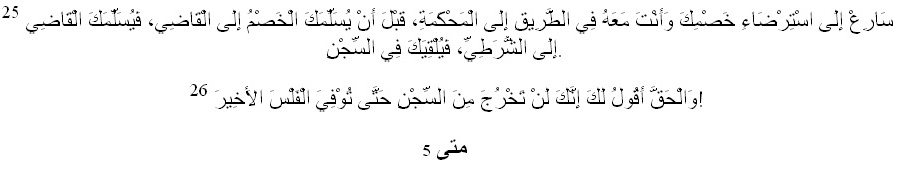 25 سَارِعْ إلى اسْتِرْضَاءِ خَصْمِكَ وَأَنْتَ مَعَهُ فِي الطَّرِيقِ إلى الْمَحْكَمَةِ، قَبْلَ أَنْ يُسَلِّمَكَ الْخَصْمُ إلى الْقَاضِي، فَيُسَلِّمَكَ الْقَاضِي
إلى الشُّرَطِيِّ، فَيُلْقِيَكَ فِي السِّجْنِ.
26 وَالْحَقَّ أَقُولُ لَكَ إِنَّكَ لَنْ تَخْرُجَ مِنَ السِّجْنِ حَتَّى تُوْفِيَ الْفَلْسَ الأَخِيرَ!
متى 5